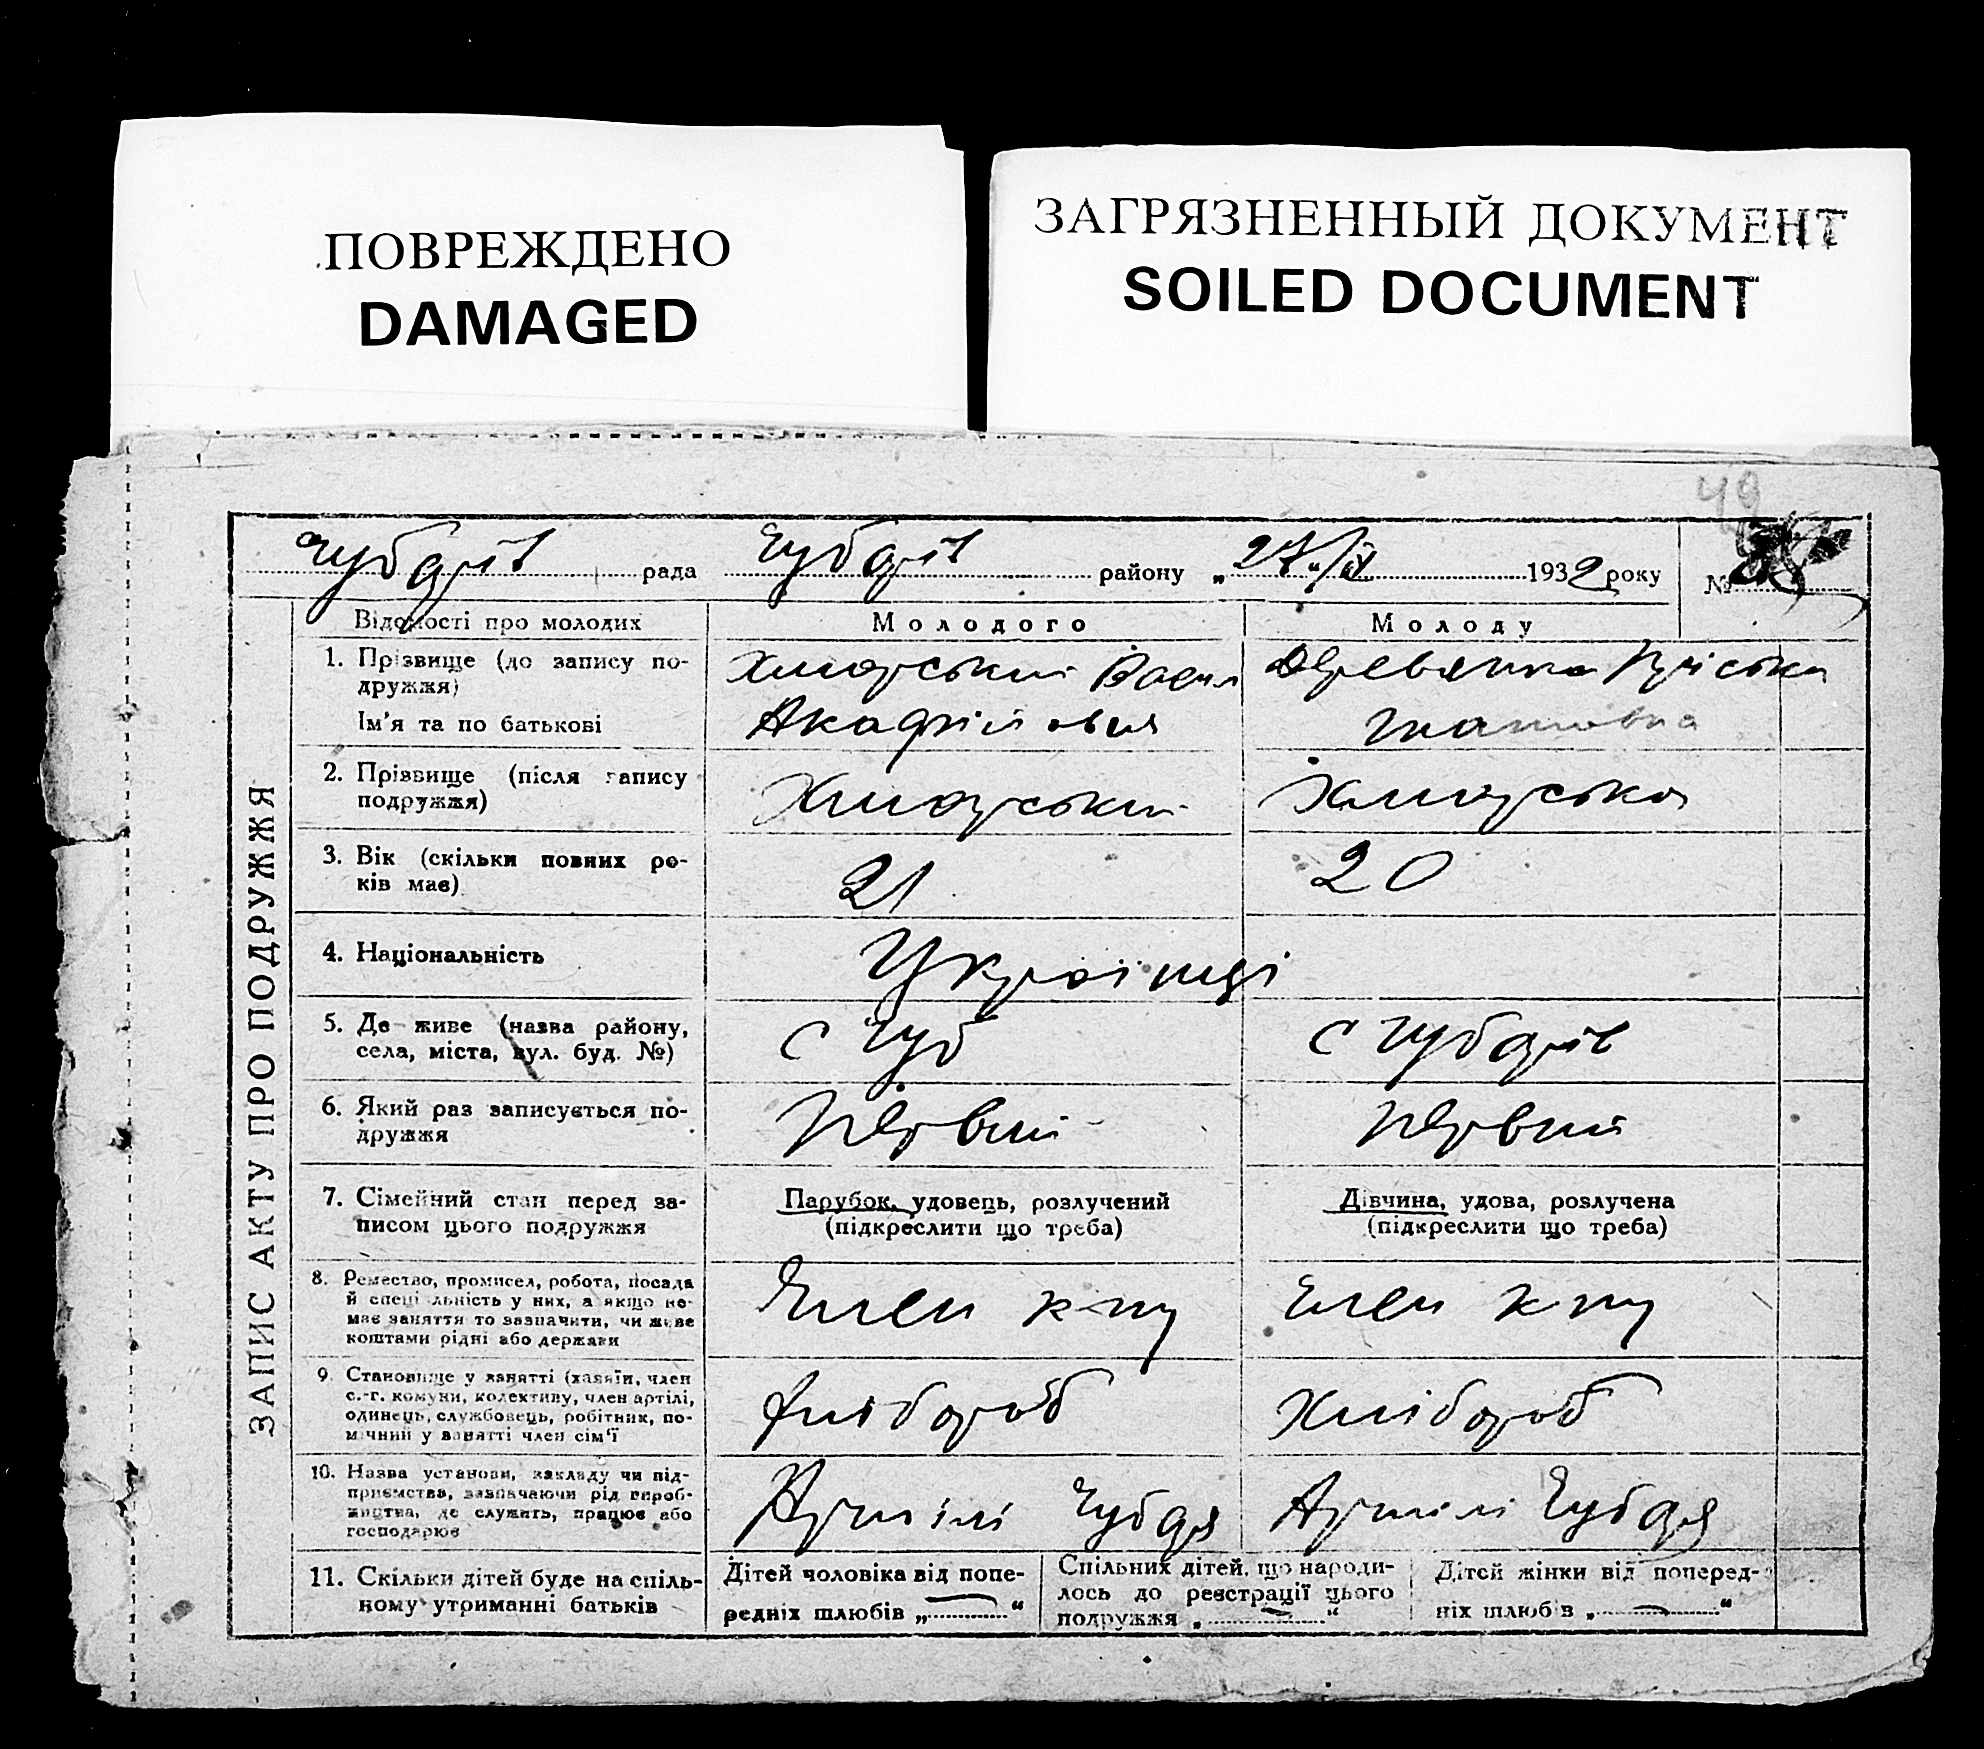 ПОВРЕЖДЕНО
DAMAGED
ЗАГРЯЗНЕННЫЙ ДОКУМЕНТ
SOILED DOCUMENT
49
Чубарів рада Чубарів району „27/IV 1932 року №
ЗАПИС АКТУ ПРО ПОДРУЖЖЯ
Відомості про молодих
Молодого
Молоду
1. Прізвище (до запису по-
дружжя)
Ім'я та по батькові
Хмарський Васил
Деревянко
2. Прізвище (після запису
подружжя)
Хмарський
Хмарська
3. Вік (скільки повних ро-
ків має)
21
20
4. Національність
Українці
5. Де живе (назва району,
села, міста, вул. буд. №)
с Чуб
с Чубарів
6. Який раз записується по-
дружжя
Первий
Первий
7. Сімейний стан перед за-
писом цього подружжя
Парубок, удовець, розлучений
(підкреслити що треба)
Дівчина, удова, розлучена
(підкреслити що треба)
8. Ремество, промисел, робота, посада
й спеціальність у них, а якщо не-
має заняття то зазначити, чи живе
коштами рідні або держави
Член
Член
9. Становище у занятті (хазяїн, член
с.-г. комуни, колективу, член артілі,
одинець, службовець, робітник, по-
мічний у занятті член сім'ї
Хлібороб
Хлібороб
10. Назва установи, закладу чи під-
приємства, зазначаючи рід вироб-
ництва, де служить, працює або
господарює
Артілі Чубаря
Артілі Чубаря
11. Скільки дітей буде на спіль-
ному утриманні батьків
Дітей чоловіка від попе-
редніх шлюбів „ — “
Спільних дітей, що народи-
лось до реєстрації цього
подружжя „ — “
Дітей жінки від поперед-
ніх шлюбів „ — “